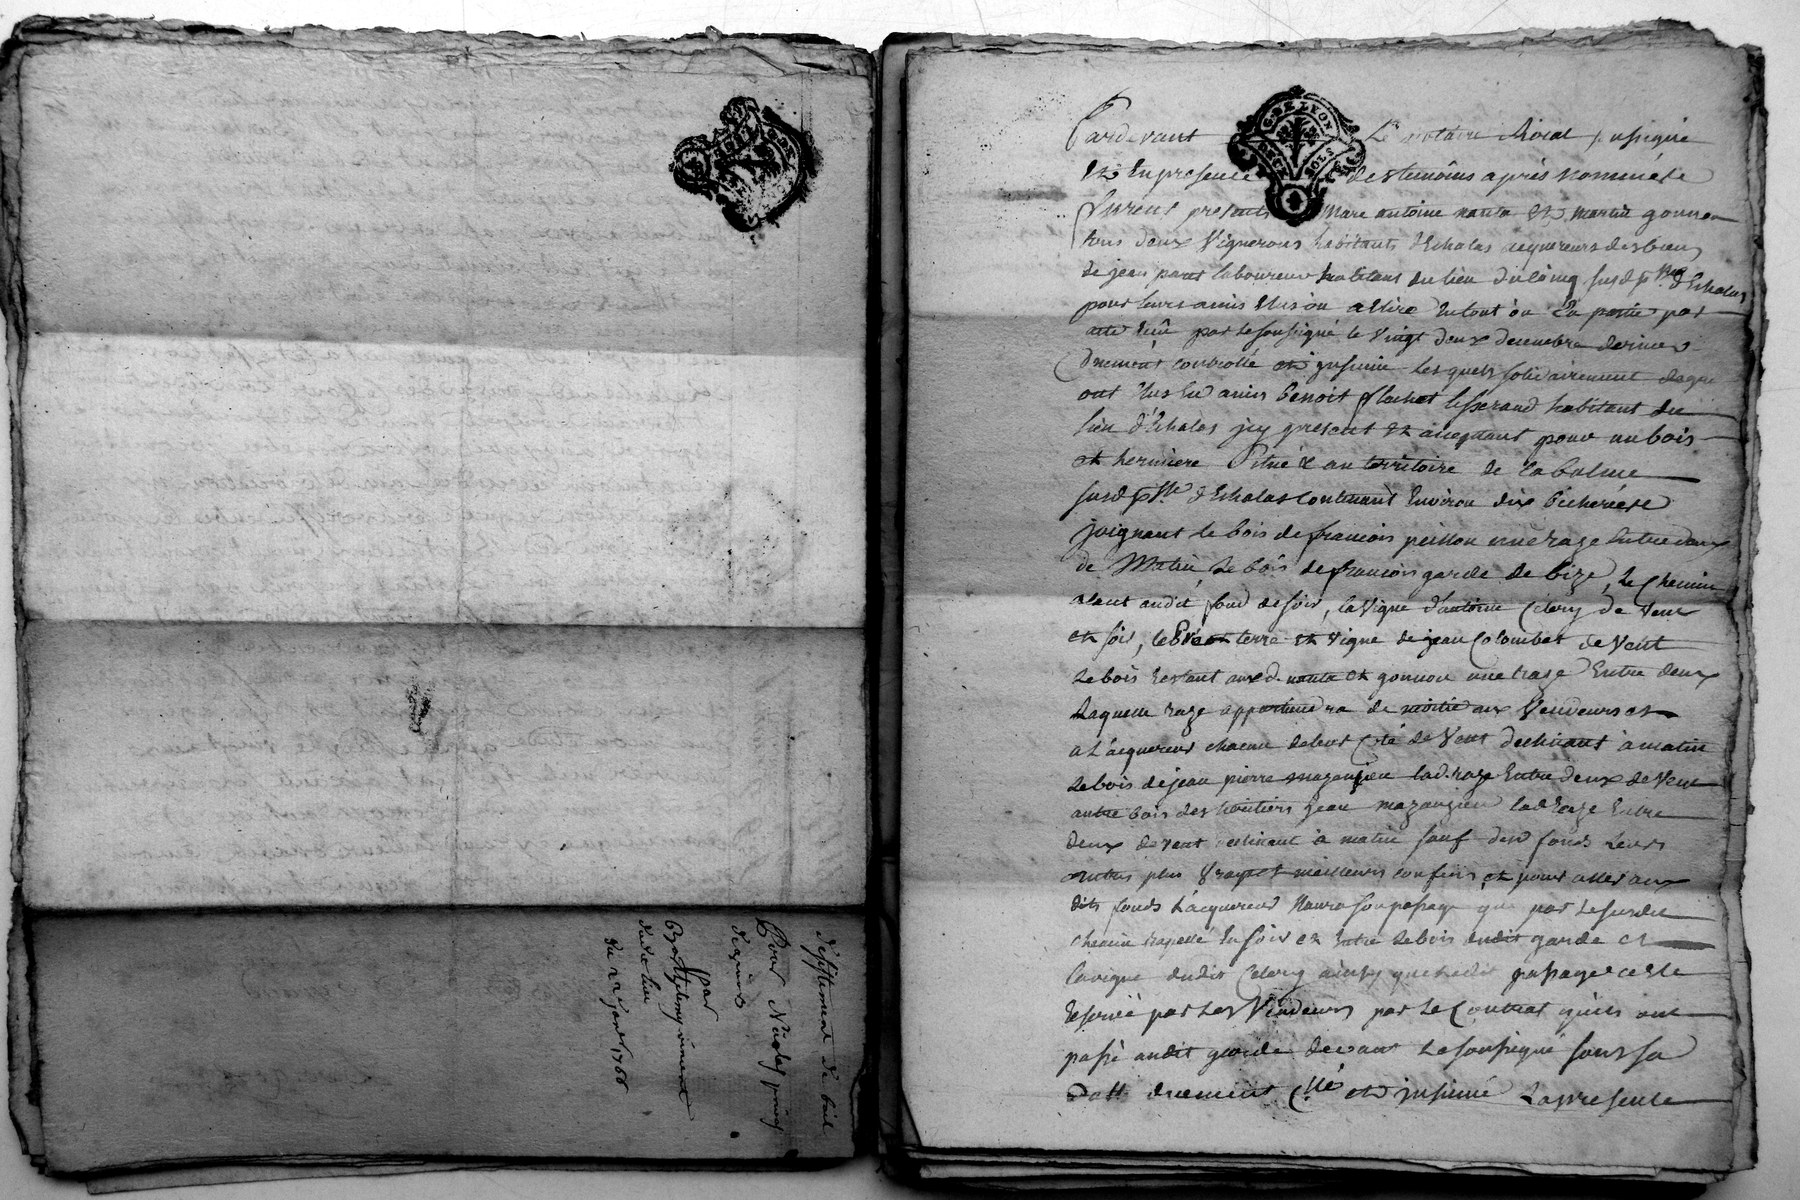 desistement de bail
Pour Nicolas
par
Barthelemy
dudit lieu
du 22 janv 1766
GNE LYON
DEUX SOLS
Pardevant Le notaire Roial soussigné
Et En presence des temoins après nommés
furent presents Marc antoine nanta Et martin gonnon
tous deux Vignerons habitants d'Echalas acquereurs des biens
de jean laboureur habitant du lieu
pour leurs amis Elus ou a Elire En tout ou En partie par
acte reçu par le soussigné le Vingt deux decembre dernier
duement controllé et insinué Lesquels solidairement de gré
ont Elus En amis Benoit flachat tisserand habitant du
lieu d'Echalas icy present et acceptant pour un bois
et hermiere Situé au territoire de la balme
susd. psse d'Echalas Contenant Environ dix bicherées
joignant le bois de francois peillon une raze Entre deux
de Matin, Le bois de francois garde de bize, Le chemin
alant audit fond de soir, la Vigne d'antoine Celery de Vent
et soir, le et terre et vigne de jean Colombet de Vent
Le bois restant aux d. nanta et gonnon une raze Entre deux
Laquelle raze appartiendra de moitié aux Vendeurs et
a L'acquereur chacun de leur Coté de Vent declinant à matin
Le bois de jean pierre mazanjeu lad. raze Entre deux de Vent
autre bois des heritiers jean mazanjeu lad. raze Entre
deux de vent declinant à matin sauf desd. fonds Leurs
autres plus Vrays et meilleurs confins, et pour aller aux
dits fonds L'acquereur N'aura son passage que par Le susdit
chemin rapellé En soir et Entre Le bois dudit garde et
la vigne dudit Celery ainsy que ledit passage a esté
reservé par Les Vendeurs par Le Contrat qu'ils ont
passé audit garde devant Le soussigné sous sa
datte duement Cllé et insinué La presente